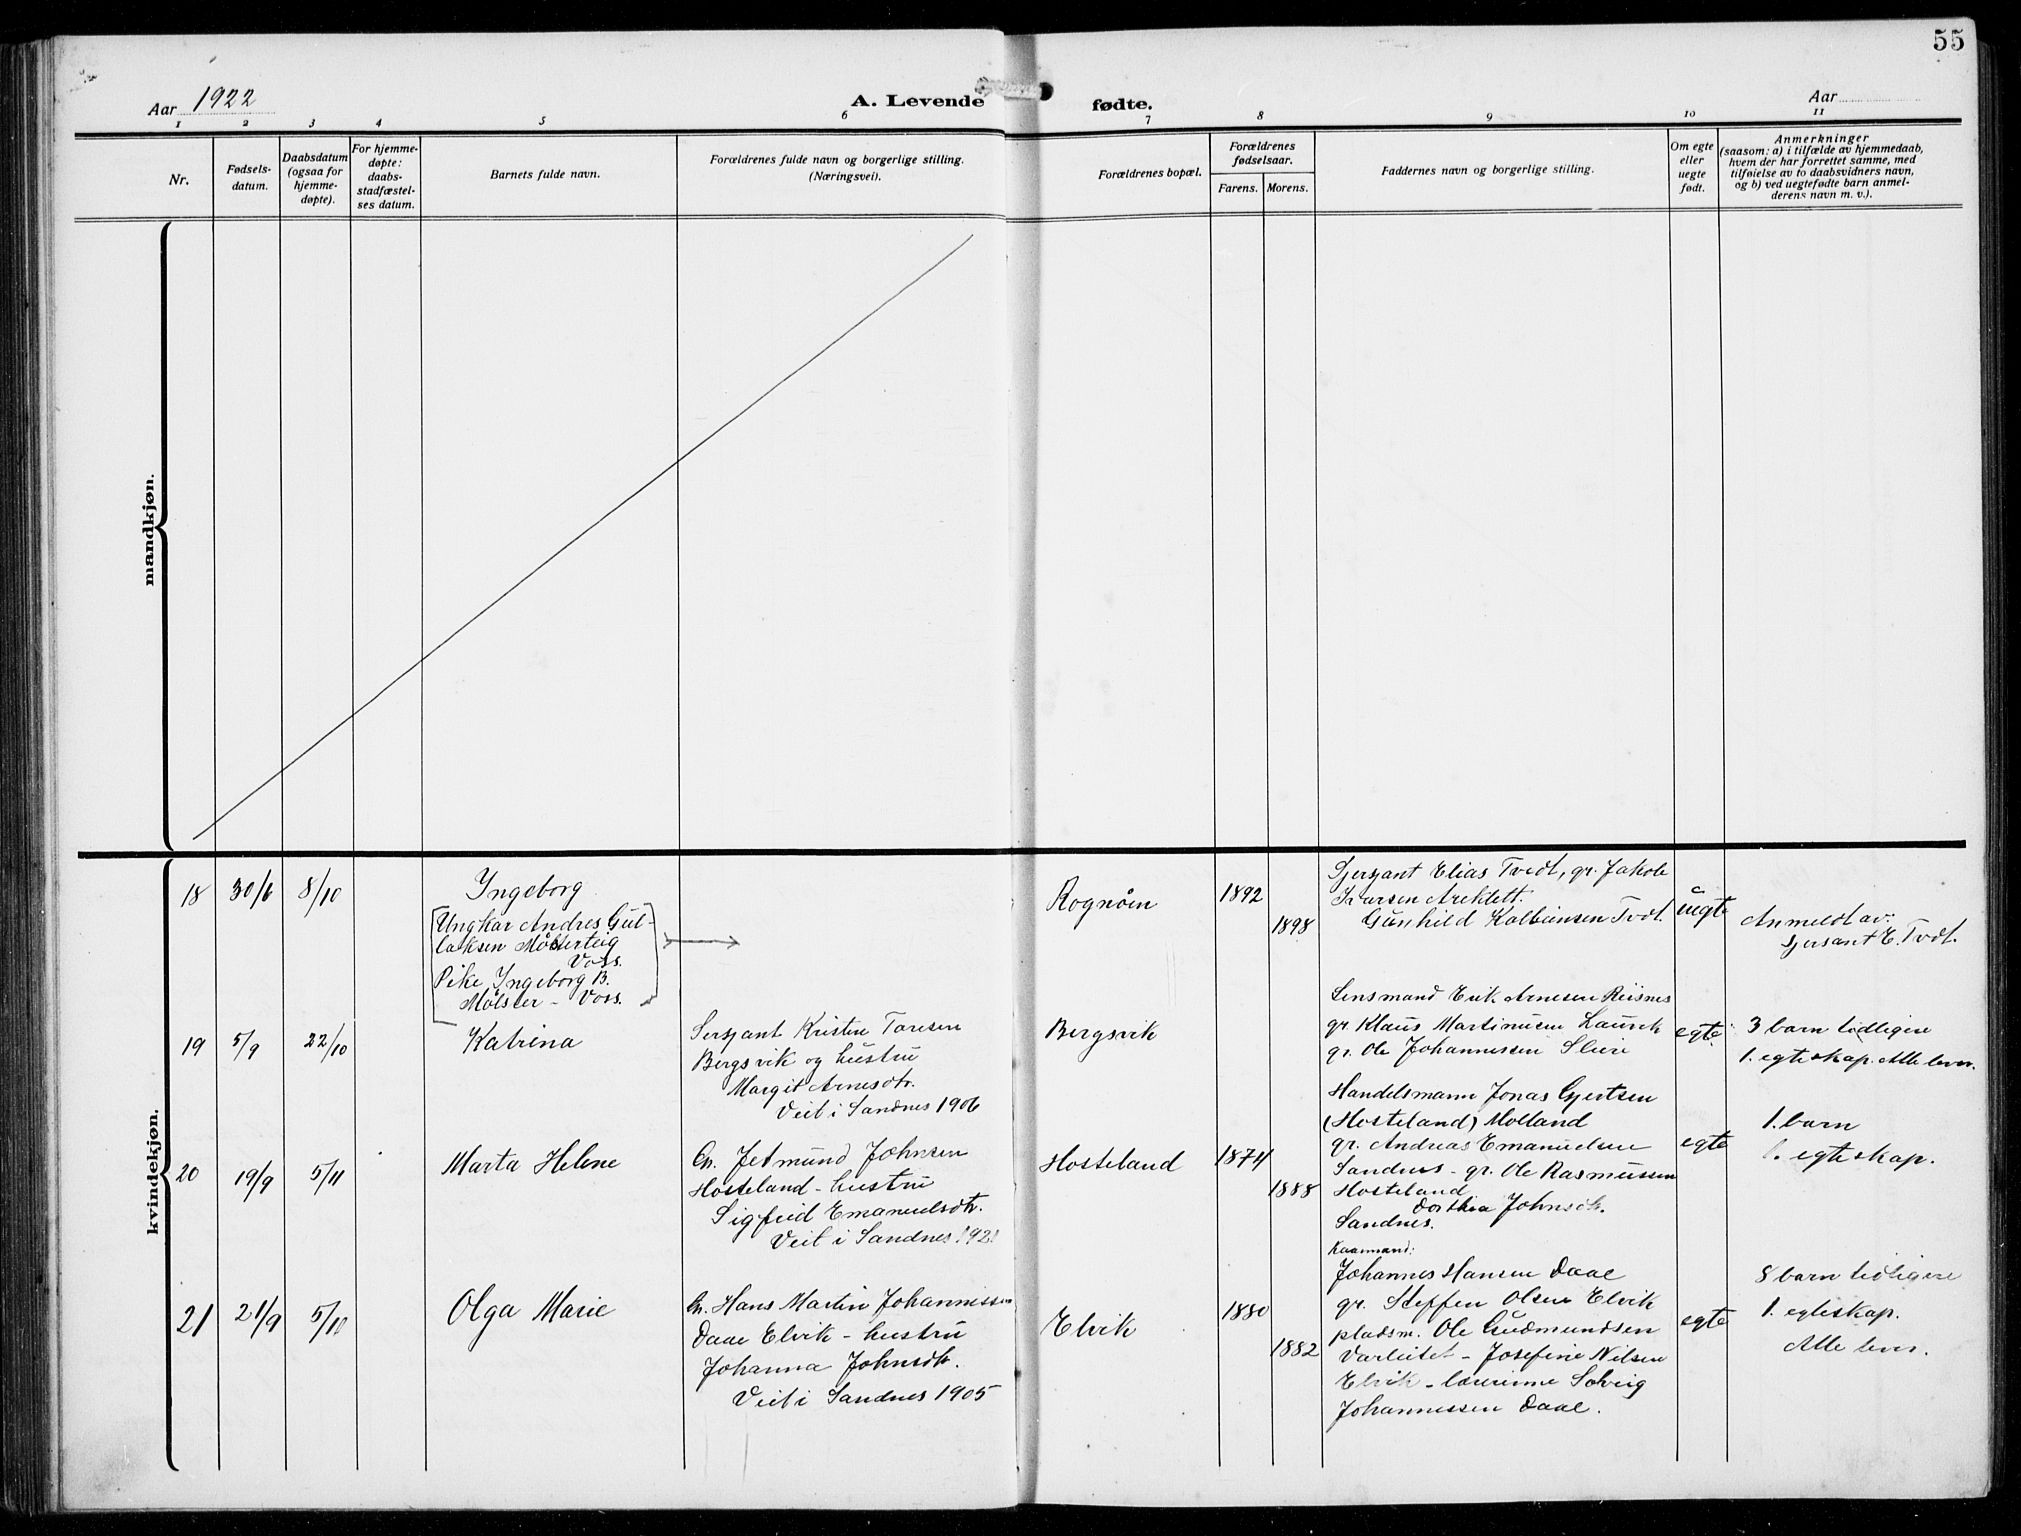 55
Aar 1922
A. Levende fødte.
Aar
1 2 3 4 5 6 7 8 9 10 11
Nr.
Fødsels-
datum.
Daabsdatum
(ogsaa for
hjemme-
døpte).
For hjemme-
døpte:
daabs-
stadfæstel-
ses datum.
Barnets fulde navn.
Forældrenes fulde navn og borgerlige stilling.
(Næringsvei).
Forældrenes bopæl.
Forældrenes
fødselsaar.
Farens. Morens.
Faddernes navn og borgerlige stilling.
Om egte
eller
uegte
født.
Anmerkninger
(saasom: a) i tilfælde av hjemmedaab,
hvem der har forrettet samme, med
tilføielse av to daabsvidners navn,
og b) ved uegtefødte barn anmel-
derens navn m. v.).
mandkjøn.
kvindekjøn.
18 30/6 8/10
Ingeborg
Ungkar Andres Gul-
laksen Mølsterteig
Voss.
Pike Ingeborg B.
Mølster - Voss.
Rognøen
1892
1898
Sjersant Elias Tvedt, gr. Jakob
Ivarsen
Gunhild Kolbeinsen Tvdt.
uegte
Anmeldt av:
Sjersant E. Tvdt.
19 5/9 22/10
Katrina
Sersjant Kristen Toresen
Bergsvik og hustru
Margit Arnesdtr.
Viet i Sandnes 1906
Bergsvik
Lensmand Erik Arnesen Riisnes
gr. Klaus Martinusen
gr. Ole Johannessen
egte
3 barn tidligere
1. egteskap. Alle lever.
20 19/9 5/11
Marta Helene
Gr. Jetmund Johnsen
Hosteland - hustru
Sigfrid Emanuelsdtr.
Viet i Sandnes 1921
Hosteland
1874
1888
Handelsmann Jonas Gjertsen
(Hosteland) Molland
gr. Andreas Emanuelsen
Sandnes - gr. Ole Rasmussen
Hosteland
Dorthea Johnsdtr.
Sandnes.
egte
1. barn
1. egteskap.
21 21/9 5/10
Olga Marie
Gr. Hans Martin Johannessen
Daae Elvik - hustru
Johanna Johnsdtr.
Viet i Sandnes 1905
Elvik
1880
1882
Kaarmand:
Johannes Hansen Daae
gr. Steffen Olsen Elvik
pladsm. Ole Gudmundsen
Varleitet - Josefine Nilsen
Elvik - lærerinne Solveig
Johannessen Daae.
egte
8 barn tidligere
1. egteskap.
Alle lever.